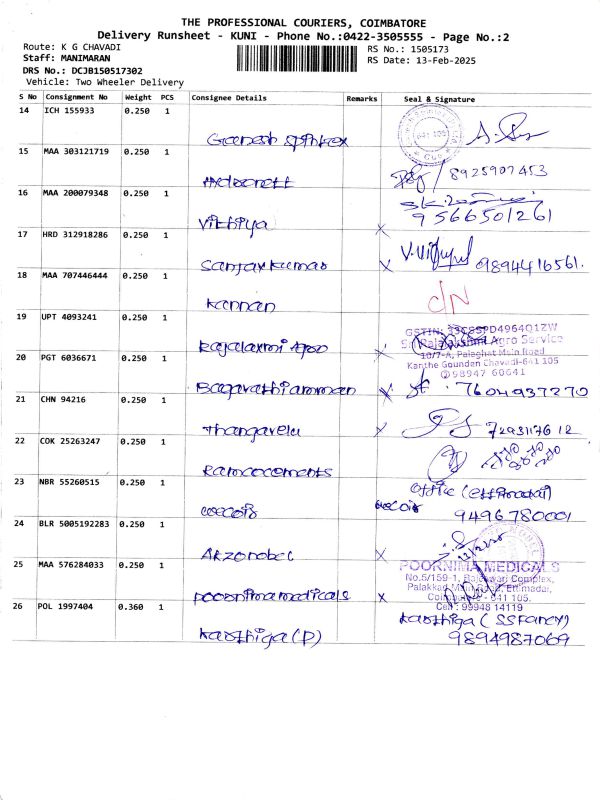 THE PROFESSIONAL COURIERS, COIMBATORE
Delivery Runsheet - KUNI - Phone No.:0422-3505555 - Page No.:2
Route: K G CHAVADI
RS No.: 1505173
Staff: MANIMARAN
RS Date: 13-Feb-2025
DRS No.: DCJB150517302
Vehicle: Two Wheeler Delivery
S No Consignment No Weight PCS Consignee Details Remarks Seal & Signature
14 ICH 155933 0.250 1
Ganesh spintex
15 MAA 303121719 0.250 1
8925907453
16 MAA 200079348 0.250 1
Vithiya
9566501261
17 HRD 312918286 0.250 1
Sanjaykumar
9894416561.
18 MAA 707446444 0.250 1
Kannan
C/N
19 UPT 4093241 0.250 1
Rajalaxmi Agro
Agro Service
10/7-A, Palaghat Main Road
20 PGT 6036671 0.250 1
Kanthe Gounden Chavadi-641 105
98947 60641
Bagavathiamman
7604937270
21 CHN 94216 0.250 1
Thangavelu
7293117612
22 COK 25263247 0.250 1
Ramcocements
23 NBR 55260515 0.250 1
9496780001
24 BLR 5005192283 0.250 1
Akzonobel
25 MAA 576284033 0.250 1
POORNIMA MEDICALS
No.5/159-1, Rajeswari Complex,
Palakkad Main Road, Ettimadai,
Coimbatore - 641 105.
Cell : 99948 14119
poornimamedicals
26 POL 1997404 0.360 1
Karthiga (P)
Karthiga (SS Fancy)
9894987069